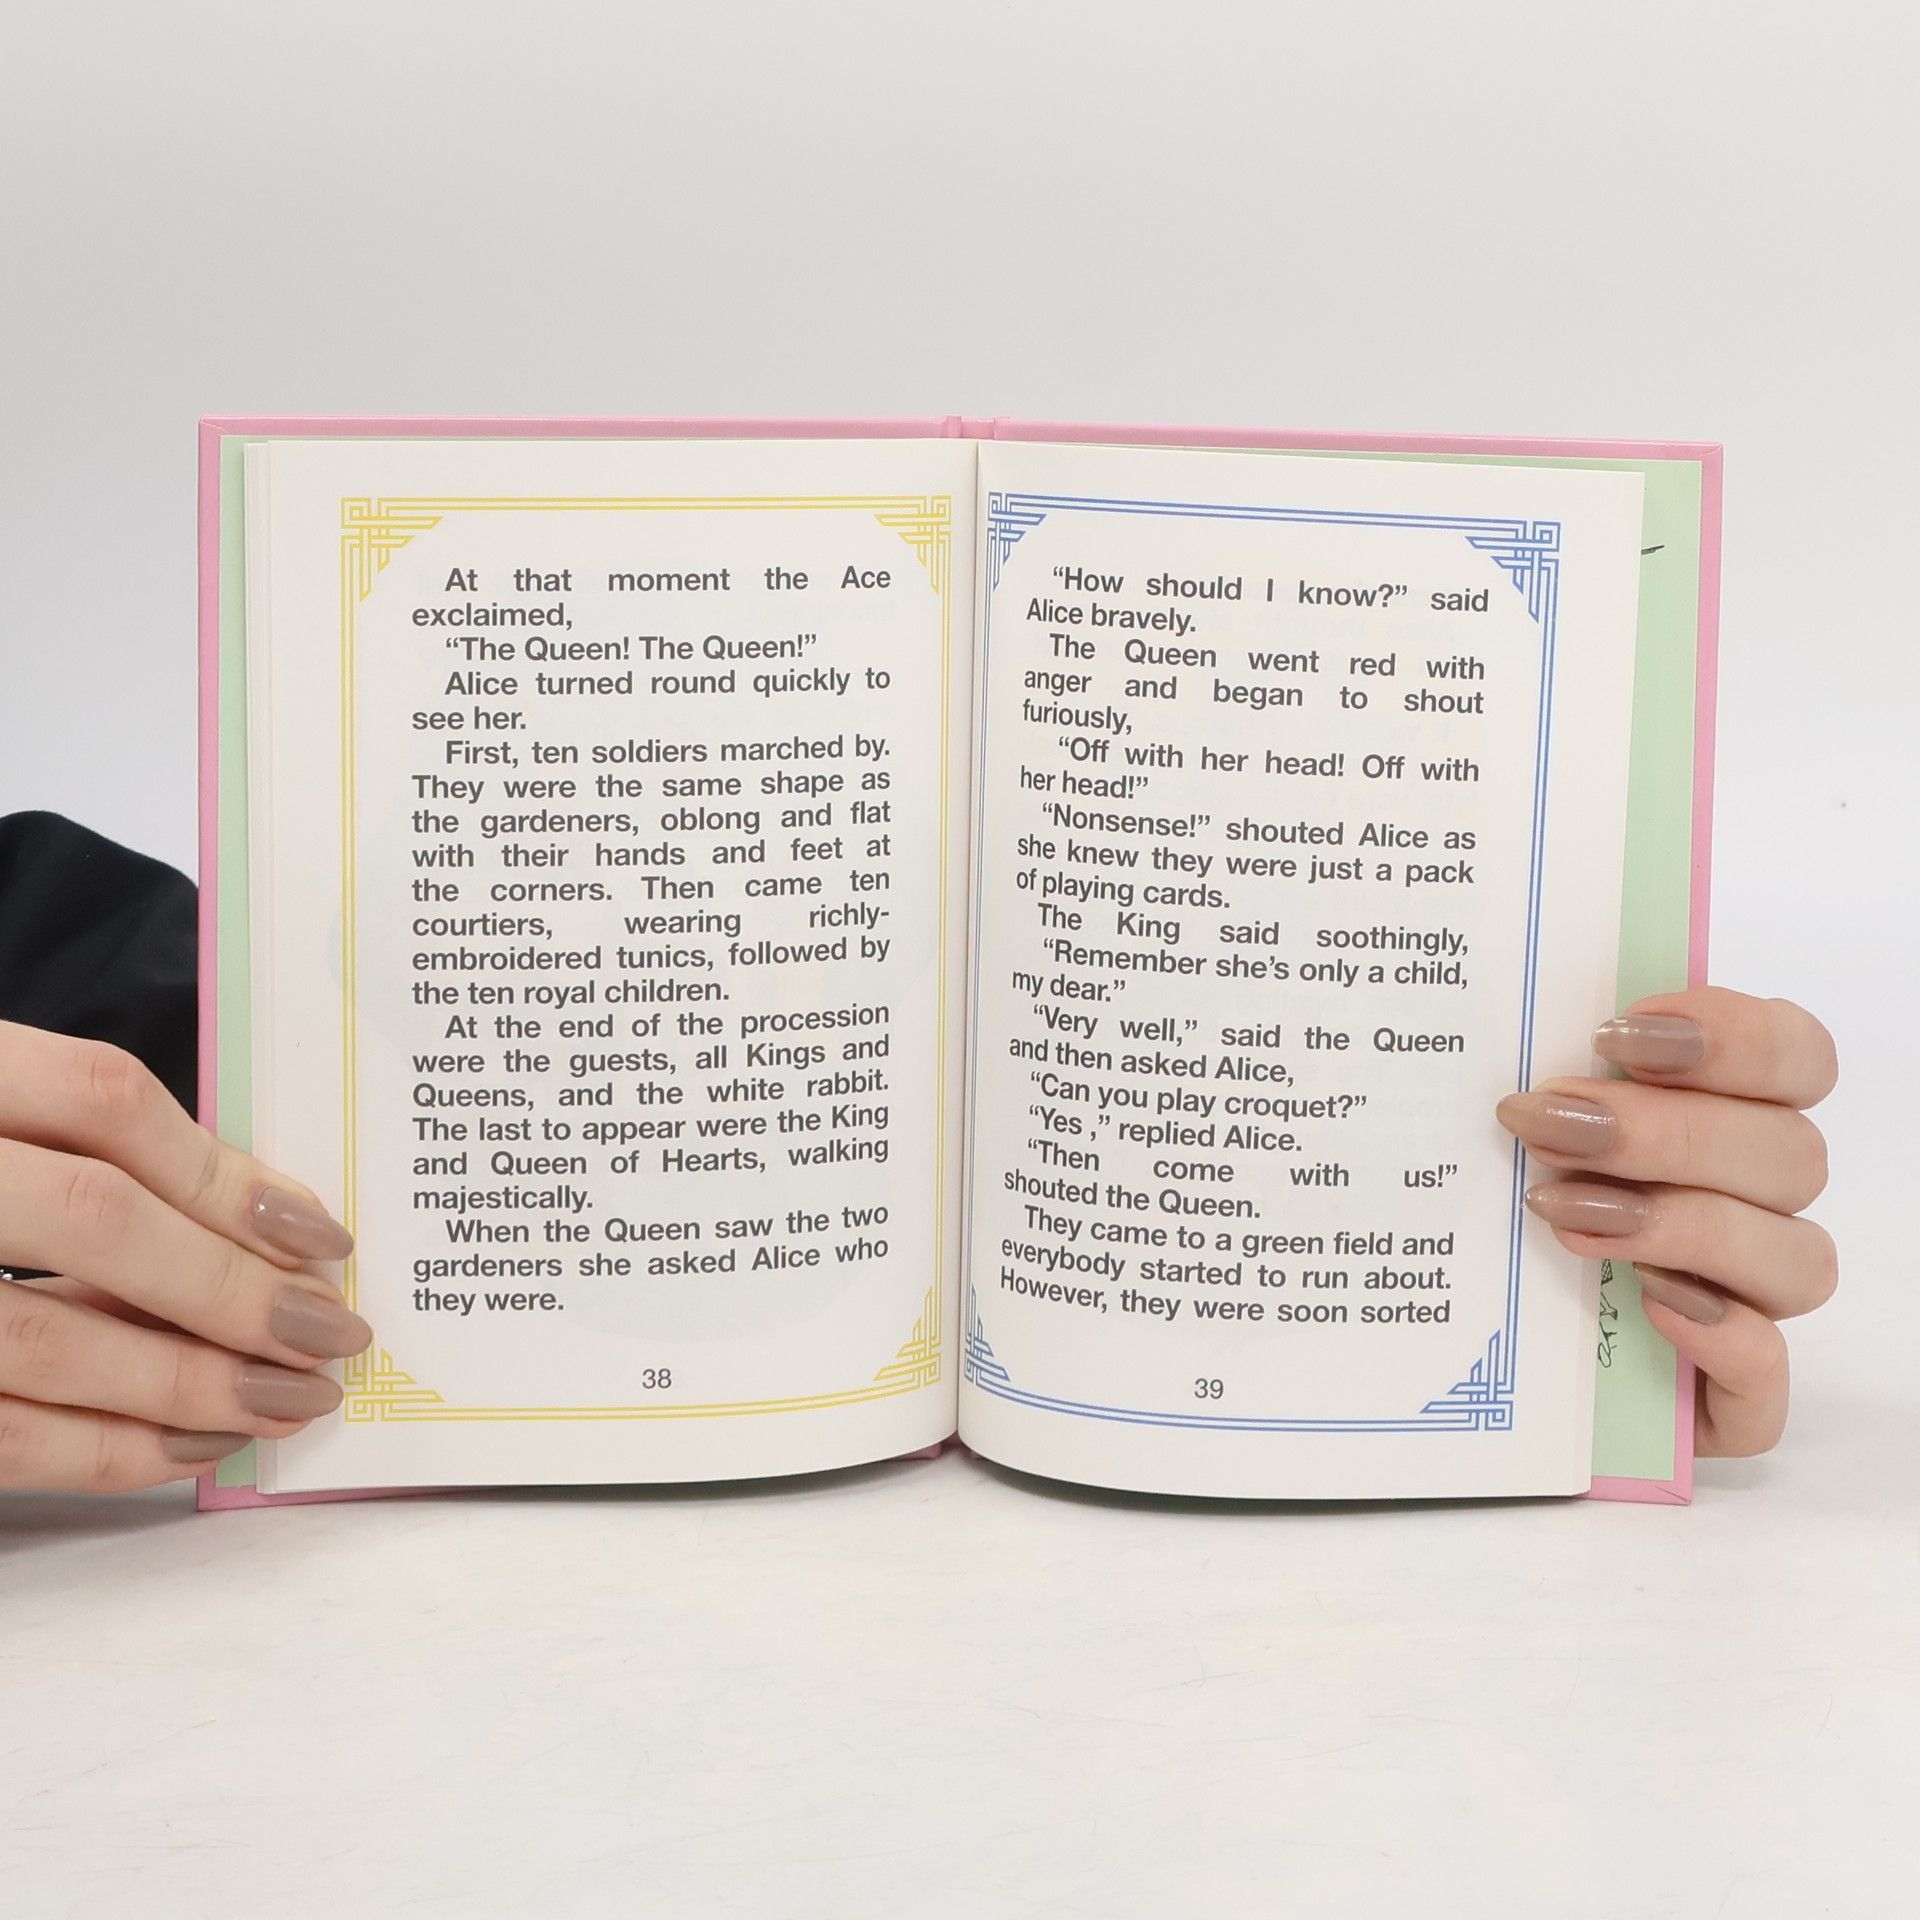 At that moment the Ace
exclaimed,
“The Queen! The Queen!”
Alice turned round quickly to
see her.
First, ten soldiers marched by.
They were the same shape as
the gardeners, oblong and flat
with their hands and feet at
the corners. Then came ten
courtiers, wearing richly-
embroidered tunics, followed by
the ten royal children.
At the end of the procession
were the guests, all Kings and
Queens, and the white rabbit.
The last to appear were the King
and Queen of Hearts, walking
majestically.
When the Queen saw the two
gardeners she asked Alice who
they were.
38
“How should I know?” said
Alice bravely.
The Queen went red with
anger and began to shout
furiously,
“Off with her head! Off with
her head!”
“Nonsense!” shouted Alice as
she knew they were just a pack
of playing cards.
The King said soothingly,
“Remember she’s only a child,
my dear.”
“Very well,” said the Queen
and then asked Alice,
“Can you play croquet?”
“Yes ,” replied Alice.
“Then come with us!”
shouted the Queen.
They came to a green field and
everybody started to run about.
However, they were soon sorted
39